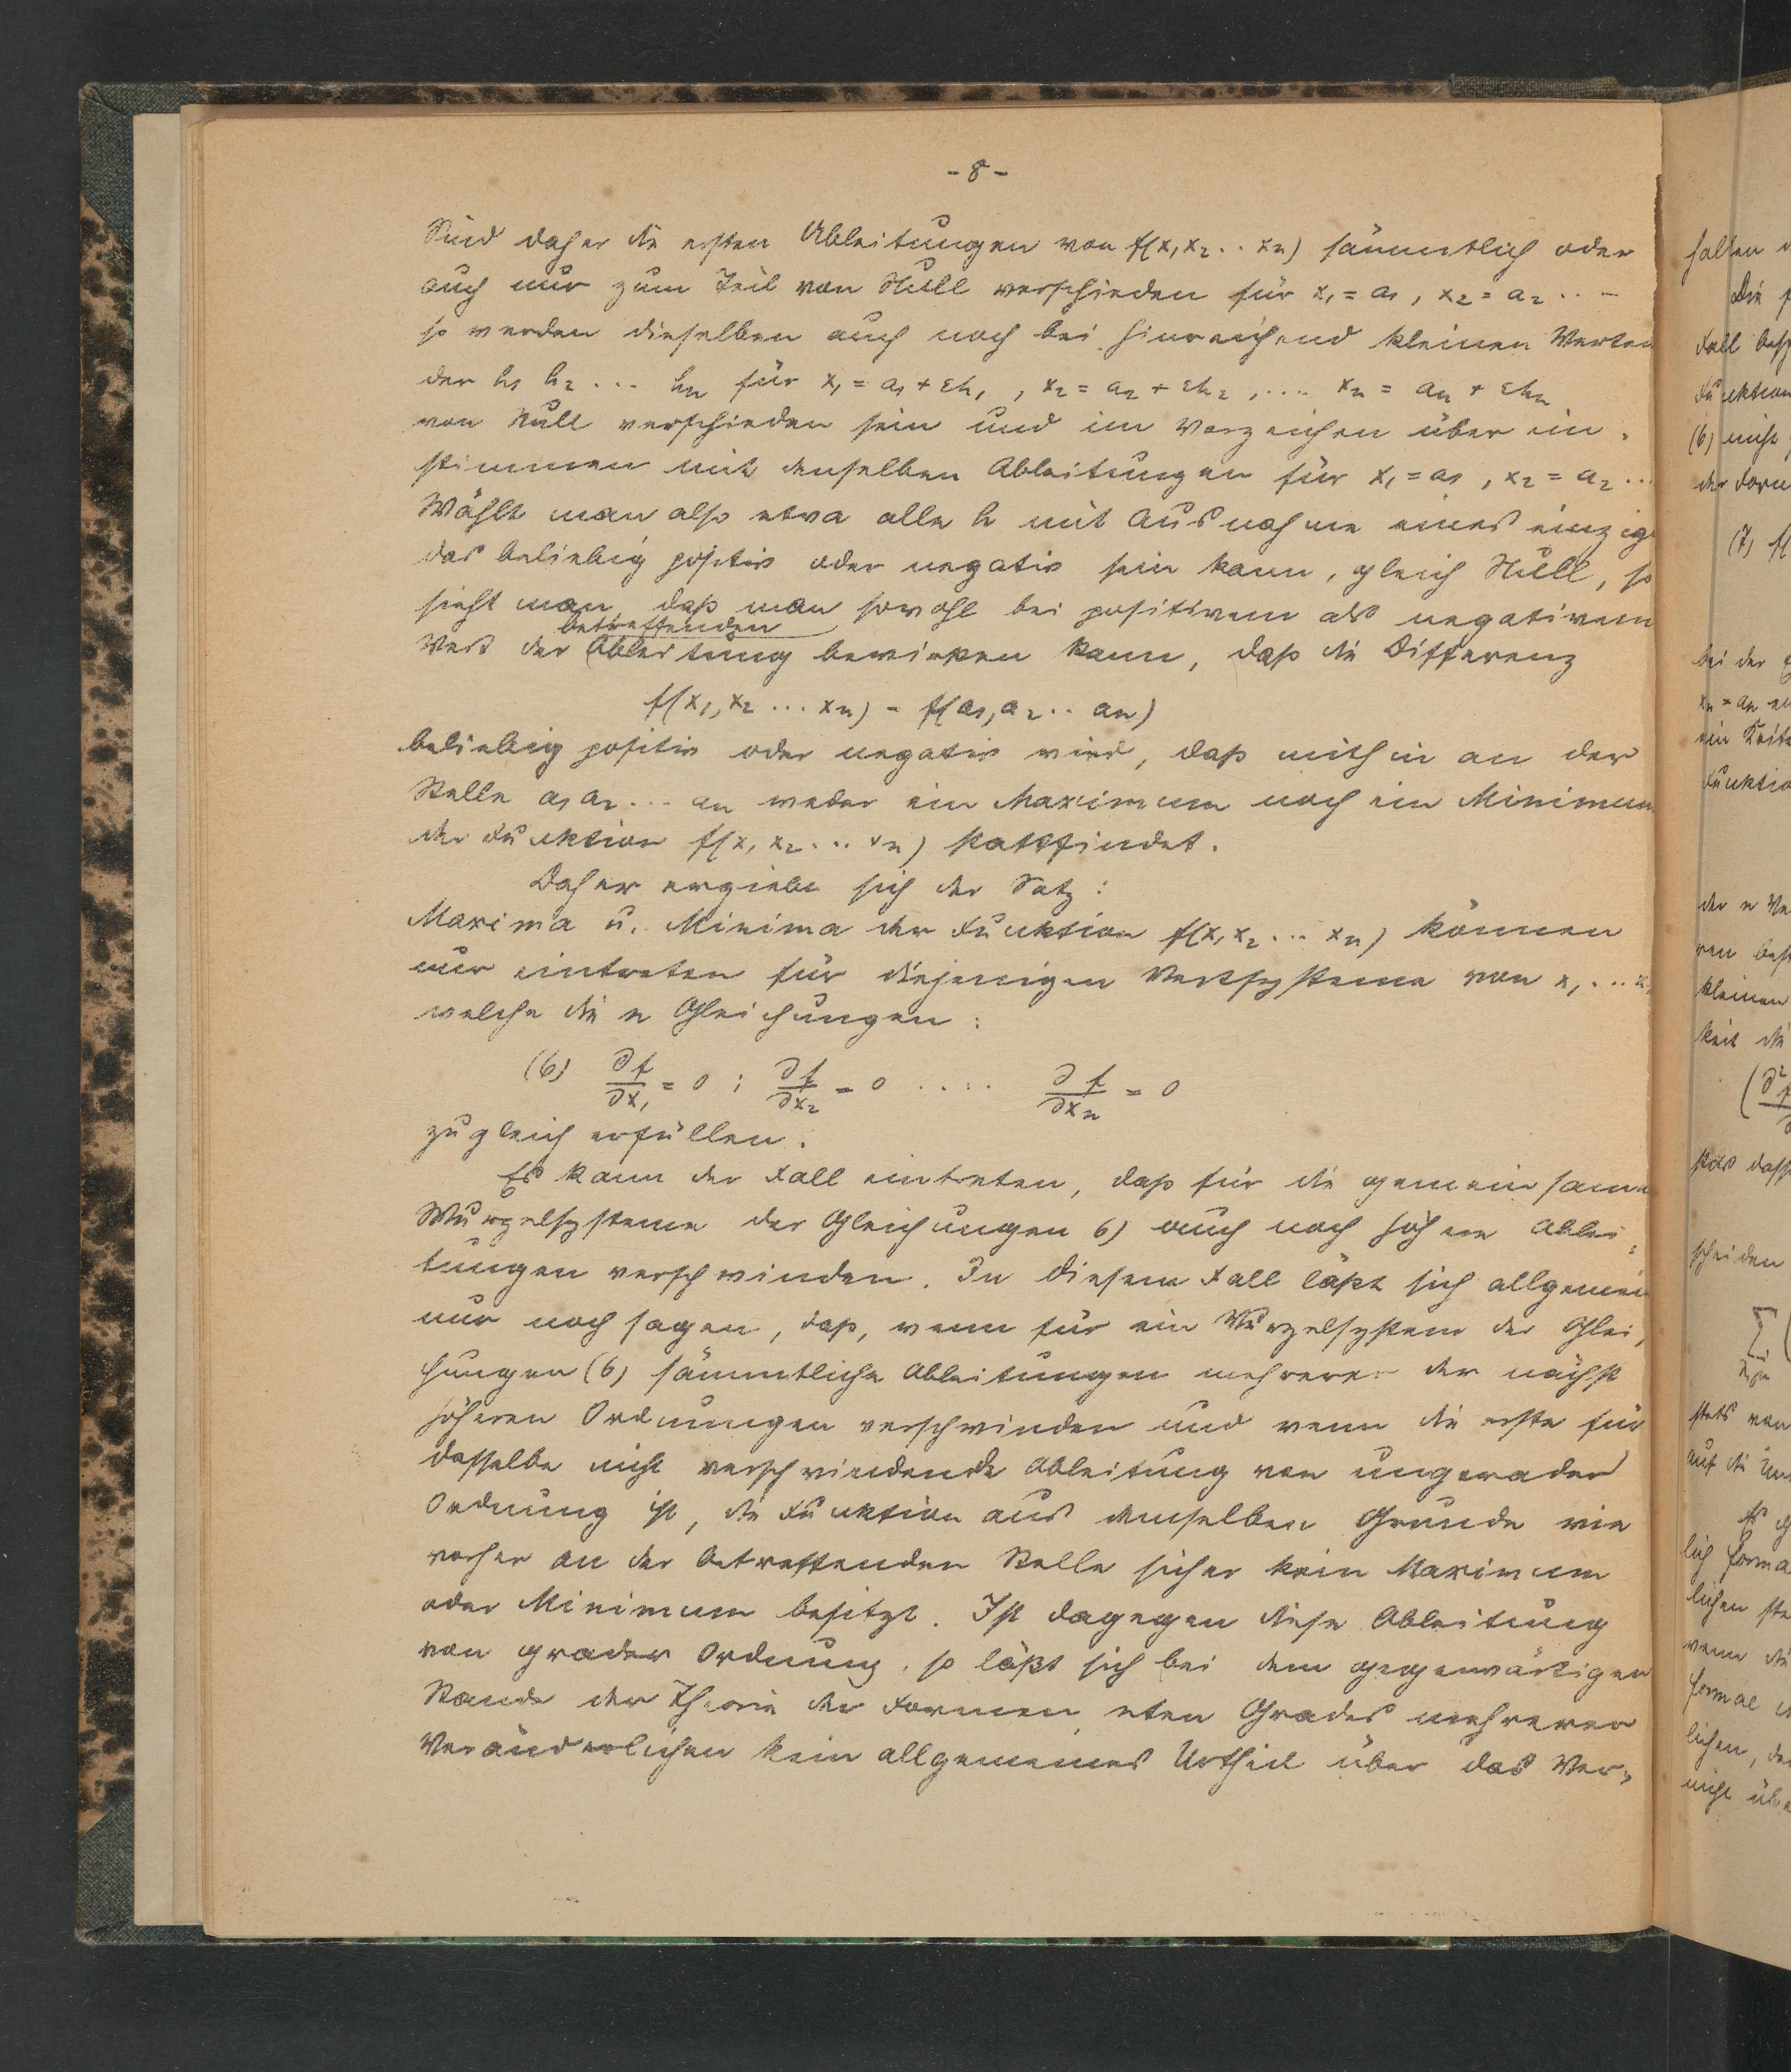 - 8 -
Sind daher die ersten Ableitungen von f(x₁x₂..xn) sämmtlich oder
auch nur zum Teil von Null verschieden für x₁ = a₁, x₂ = a₂ ...
so werden dieselben auch noch bei hinreichend kleinen Werten
der h₁ h₂ ... hn für x₁ = a₁ + εh₁, x₂ = a₂ + εh₂, .... xn = an + εhn
von Null verschieden sein und im Vorzeichen über ein-
stimmen mit denselben Ableitungen für x₁ = a₁, x₂ = a₂ ...
Wählt man also etwa alle h mit Ausnahme eines einzig
das beliebig positiv oder negativ sein kann, gleich Null, so
sieht man, daß man sowohl bei positivem als negativem
betreffenden
Wert der Ableitung bewirken kann, daß die Differenz
f(x₁, x₂ ... xn) - f(a₁, a₂ .. an)
beliebig positiv oder negativ wird, daß mithin an der
Stelle a₁ a₂ ... an weder ein Maximum noch ein Minimum
der Funktion f(x₁ x₂ ... xn) stattfindet.
Daher ergiebt sich der Satz:
Maxima u. Minima der Funktion f(x₁ x₂ ... xn) können
nur eintreten für diejenigen Wertsysteme von x₁ ... x
welche die n Gleichungen:
(6) ∂f/∂x₁ = 0 ; ∂f/∂x₂ = 0 ..... ∂f/∂xn = 0
zugleich erfüllen.
Es kann der Fall eintreten, daß für die gemeinsame
Wurzelsysteme der Gleichungen 6) auch noch höhere Ablei-
tungen verschwinden. In diesem Fall läßt sich allgemein
nur noch sagen, daß, wenn für ein Wurzelsystem der Glei-
chungen (6) sämmtliche Ableitungen mehrerer der nächst
höheren Ordnungen verschwinden und wenn die erste für
dasselbe nicht verschwindende Ableitung von ungerader
Ordnung ist, die Funktion aus demselben Grunde wie
vorher an der betreffenden Stelle sicher kein Maximum
oder Minimum besitzt. Ist dagegen diese Ableitung
von grader Ordnung, so läßt sich bei dem gegenwärtigen
Stande der Theorie der Formen nten Grades mehrerer
Veränderlichen kein allgemeines Urtheil über das Ver-
halten
Die
Fall
Funktion
(6) nicht
der Form
(7) f(
bei der
xn = an
ein
Funktio
der n Ve
ren
kleinen
keit die
(∂²f
stets dass
scheiden
Σ (
stets von
auf die
Es
lich
lichen
wenn die
lichen, de
nicht